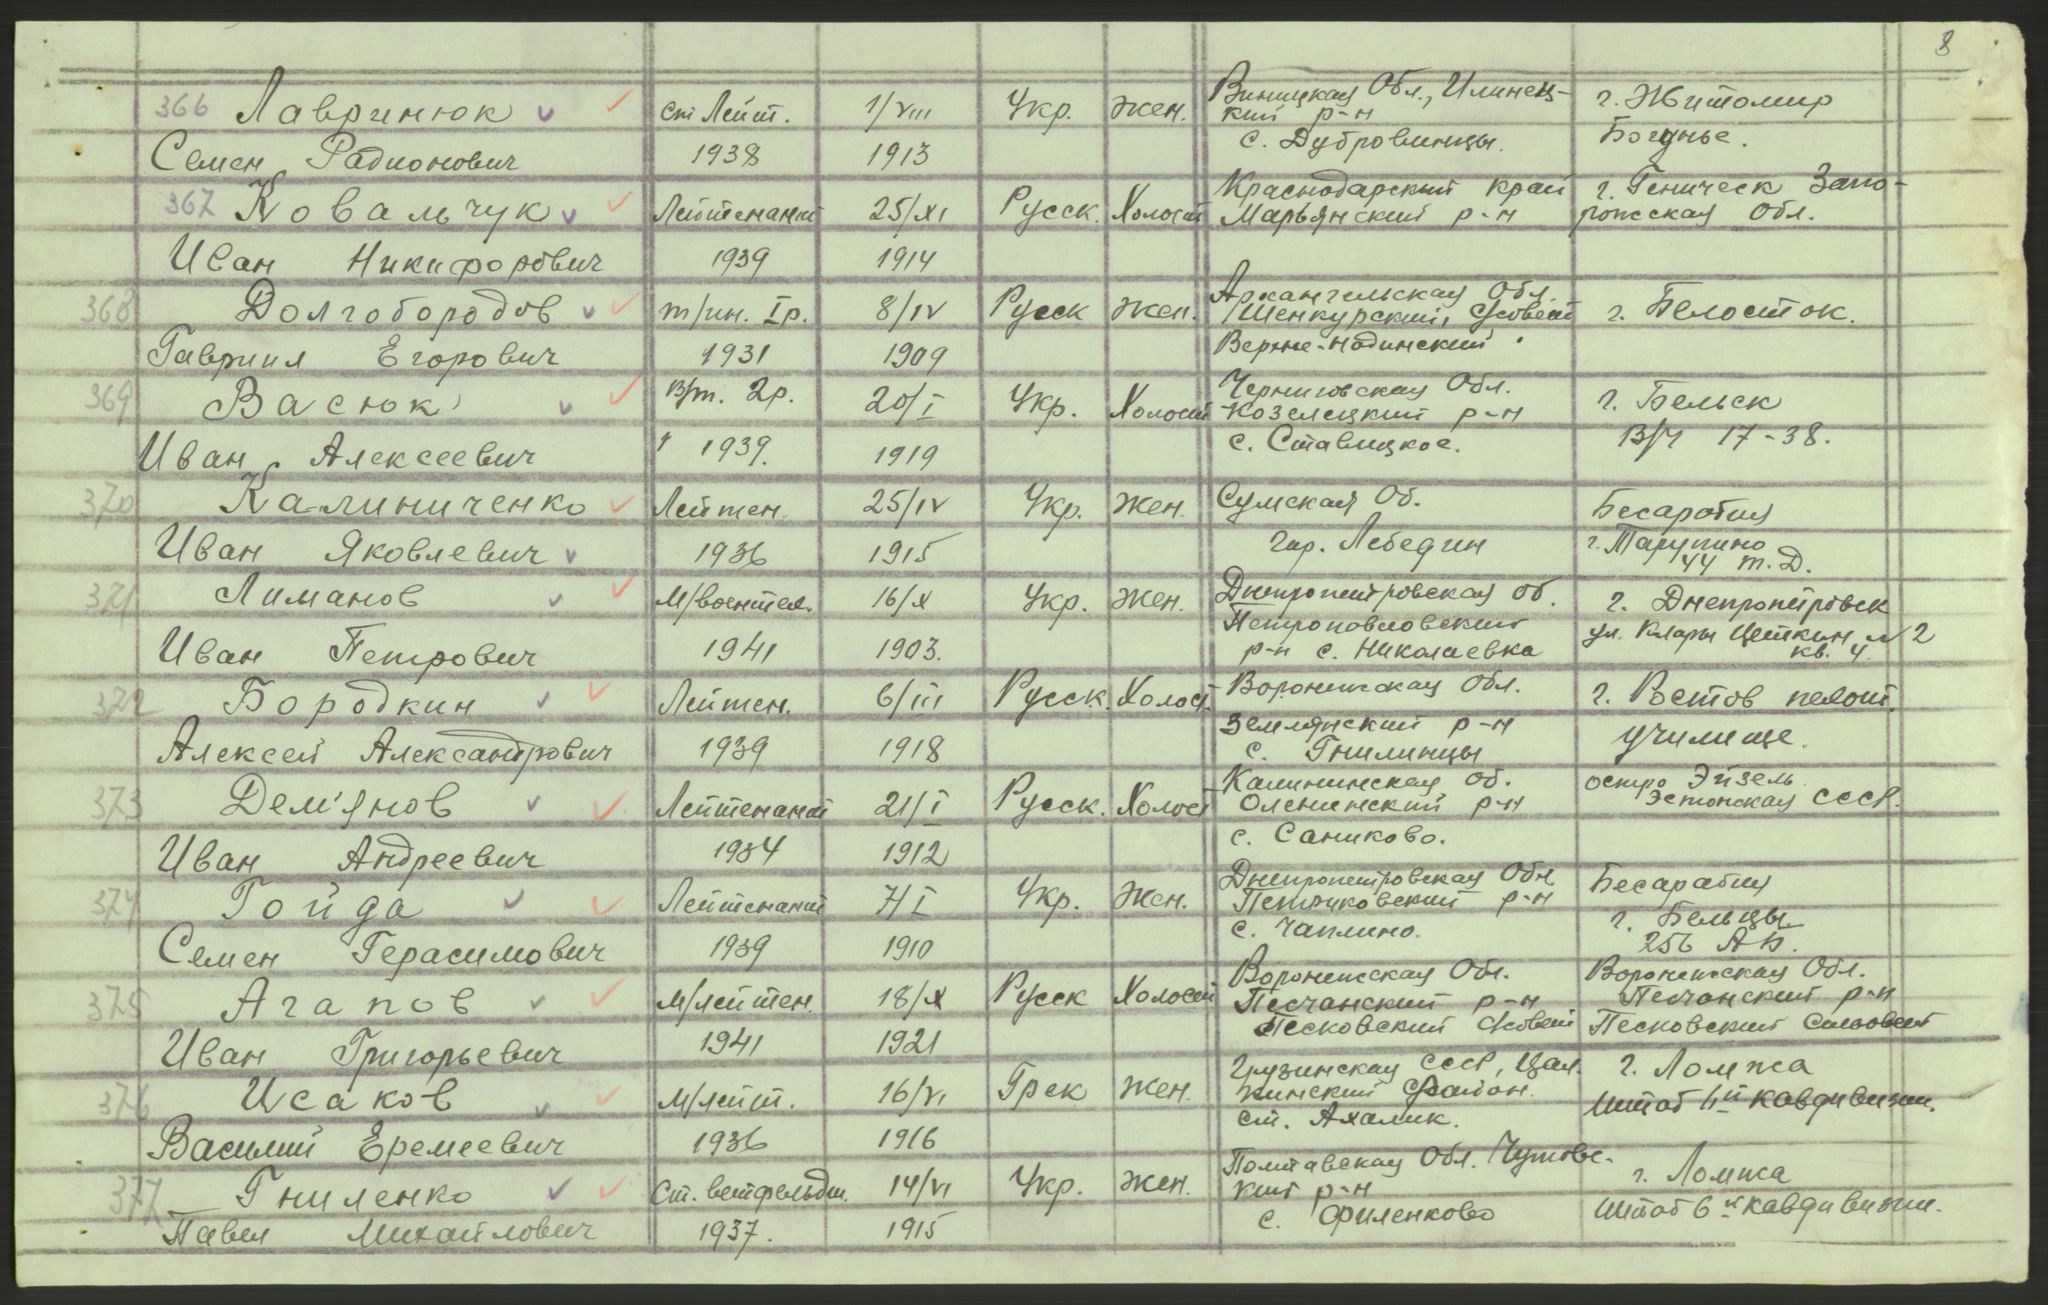 8
366 Лавринюк ст Лейт. 1/VIII Укр. жен. Виницкая Обл., Илинец- г. Житомир
кий р-н
Семен Радионович 1938 1913 с. Дубровинцы. Богунье.
367 Ковальчук Лейтенант 25/XI Русск. Холост Краснодарский край г. Геническ Запо-
Марьянский р-н рожская Обл.
Иван Никифорович 1939 1914
368 Долгобородов т/ин. Iр. 8/IV Русск жен. Архангельская Обл. г. Белосток.
Шенкурский, С/совет
Гавриил Егорович 1931 1909 Верхне-
369 Васюк в/т. 2р. 20/I Укр. Холост Черниговская Обл. г. Бельск
Козелецкий р-н
Иван Алексеевич 1939. 1919 с. Ставицкое. В/Ч 17-38.
370 Калиниченко Лейтен. 25/IV Укр. жен. Сумская Об. Бесарабия
Иван Яковлевич 1936 1915 гор. Лебедин г. Тарупино
44 т.Д.
371 Лиманов М/воентех. 16/X Укр. жен. Днепропетровская об. г. Днепропетровск
Петропавловский ул. Клары Цеткин N 2
Иван Петрович 1941 1903. р-н с. Николаевка кв. 4.
372 Бородкин Лейтен. 6/III Русск. Холост Воронежская Обл. г. Ростов пехот.
Землянский р-н
Алексей Александрович 1939 1918 с. Гнилинцы училище.
373 Дем'янов Лейтенант 21/I Русск. Холост Калининская об. остро Эйзель
Оленинский р-н Эстонская СССР.
Иван Андреевич 1934 1912 с. Саниково.
374 Гойда Лейтенант 7/I Укр. жен. Днепропетровская Обл. Бесарабия
Петриковский р-н г. Бельцы
Семен Герасимович 1939 1910 с. Чаплино. 256 АБ.
375 Агапов М/лейтен. 18/X Русск Холост Воронежская Обл. Воронежская Обл.
Песчанский р-н Песчанский р-н
Иван Григорьевич 1941 1921 Песковский С/совет Песковский Сельсовет
376 Исаков М/лейт. 16/VI Грек жен. Грузинская ССР, Цал. г. Ломжа
кинский район. Штаб 6й кавдивизии.
Василий Еремеевич 1936 1916 ст. Ахалик.
377 Гниленко Ст. ветфельдш. 14/VI Укр. жен. Полтавская Обл. Чутовс- г. Ломжа
кий р-н
Павел Михайлович 1937. 1915 с. Филенково Штаб 6й кавдивизии.